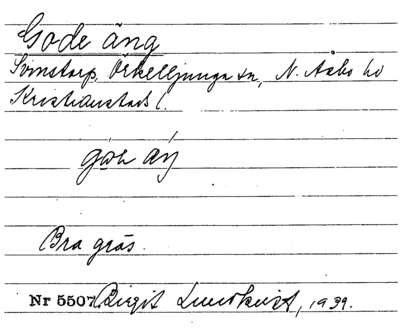 Gode äng
Svinstorp, Örkelljunga sn, N. Åsbo hd
Kristianstads l.
Bra gräs.
Nr 5507 Birgit Lundkvist, 1939.